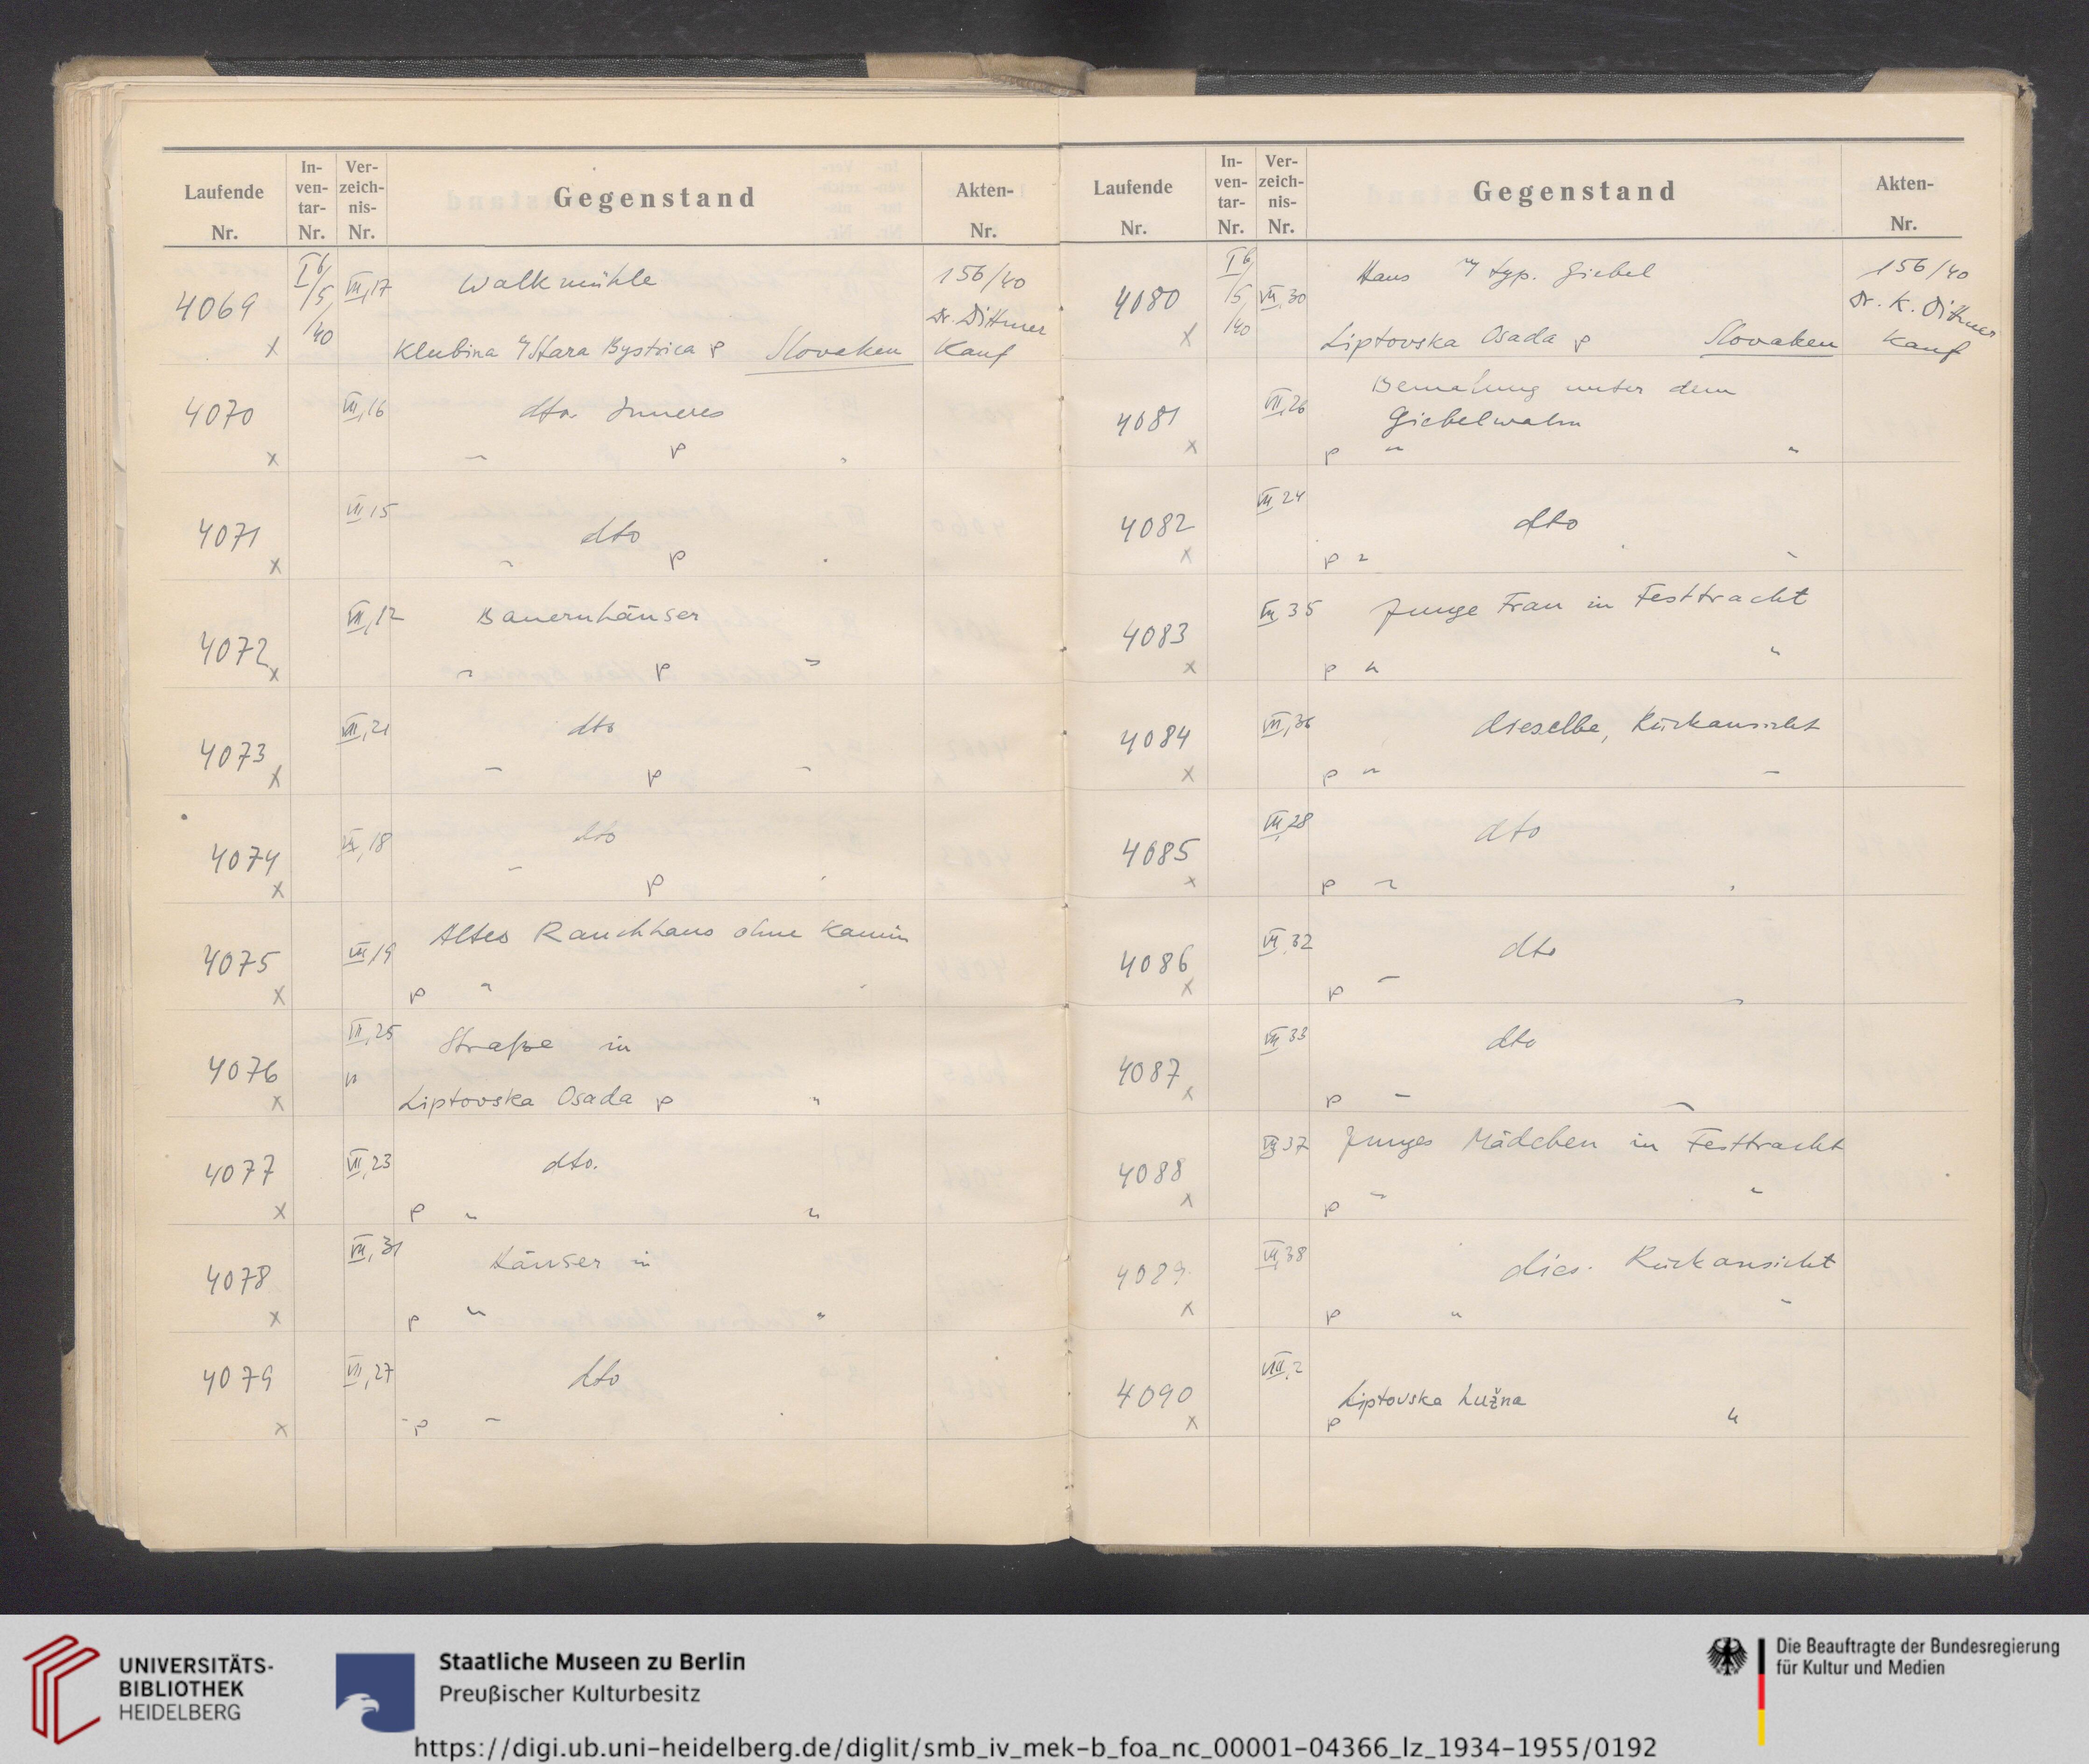 Laufende Nr.
In-ven-tar-Nr.
Ver-zeich-nis-Nr.
Gegenstand
Akten-Nr.
4069 x
I 6/5/40
VII,17
Walkmühle
156/40
Dr. Dittmer
Klubina Stara Bystrica p Slovaken Kauf
4070 x
VII,16
dto. Inneres
" p "
4071 x
VII 15
dto
" p "
4072 x
VII,12
Bauernhäuser
" p "
4073 x
VII,21
dto
" p "
4074 x
VII,18
dto
" p "
4075 x
VII,19
Altes Rauchhaus ohne Kamin
p " "
4076 x
VII,25
Straße in
"
Liptovska Osada p "
4077 x
VII,23
dto.
p " "
4078 x
VII,31
Häuser in
p " "
4079 x
VII,27
dto
p " "
Laufende Nr.
In-ven-tar-Nr.
Ver-zeich-nis-Nr.
Gegenstand
Akten-Nr.
4080 x
I 6/5/40
VII,30
Haus typ. Giebel
156/40
Dr. K. Dittmer
Liptovska Osada p Slovaken Kauf
4081 x
VII,26
Bemalung unter dem
Giebelwalm
p " "
4082 x
VII 24
dto
p " "
4083 x
VII,35
Junge Frau in Festtracht
p " "
4084 x
VII,36
dieselbe, Rückansicht
p " "
4085 x
VII,28
dto
p " "
4086 x
VII,32
dto
p " "
4087 x
VII 33
dto
p " "
4088 x
VII 37
Junges Mädchen in Festtracht
p " "
4089 x
VII,38
dies. Rückansicht
p " "
4090 x
VIII,2
Liptovska Lužna
p "
UNIVERSITÄTS-
BIBLIOTHEK
HEIDELBERG
Staatliche Museen zu Berlin
Preußischer Kulturbesitz
Die Beauftragte der Bundesregierung
für Kultur und Medien
https://digi.ub.uni-heidelberg.de/diglit/smb_iv_mek-b_foa_nc_00001-04366_lz_1934-1955/0192